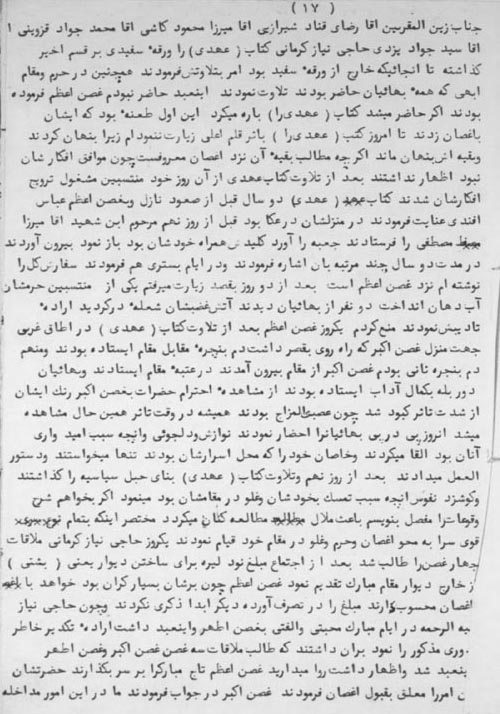 ( ١٧ )
جناب زین المقربین اقا رضای قناد شیرازیی اقا میرزا محمود کاشی اقا محمد جواد قزوینی ا
اقا سید جواد یزدی حاجی نیاز کرمانی کتاب (عهدی) را ورقهٔ سفیدی بر قسم اخیر
گذاشته تا انجائیکه خارج از ورقهٔ سفید بود امر بتلاوتش فرمودند همچنین در حرم ومقام
ابهی که همهٔ بهائیان حاضر بودند تلاوت نمودند اینعبد حاضر نبودم غصن اعظم فرموده
بودند اکر حاضر میشد کتاب (عهدی را) پاره میکرد این اول طعنهٔ بود که ایشان
باغصان زدند تا امروز کتب (عهدی را) باثر قلم اعلی زیارت ننمودام زیرا پنهان کردند
وبقیه اش پنهان ماند اکرچه مطالب بقیهٔ آن نزد اغصان معروفست چون موافق افکارشان
نبود اظهار نداشتند بعد از تلاوت کتاب عهدی از آن روز خود منتسبین مشغول ترویج
افکارشان شدند کتاب (عهدی) دو سال قبل از صعود نازل وبغصن اعظم عباس
افندی عنایت فرمودند در منزلشان در عکا بود قبل از روز نهم مرحوم ابن شهید اقا میرزا
مصطفی را فرستادند جعبه را آورد کلیدش همراه خودشان بود باز نمود بیرون آوردند
در مدت دو سال چند مرتبه بان اشاره فرمودند ودر ایام بستری هم فرمودند سفارش کل را
نوشته ام نزد غصن اعظم است بعد از دو روز بقصد زیارت میرفتم یکی از منتسبین حرمشان
آب دهان انداخت دو نفر از بهائیان دیدند آتش غضبشان شعلهٔ درکردید ارادهٔ
تادیبش نمودند منع کردم یکروز غصن اعظم بعد از تلاوت کتاب (عهدی) در اطاق غربی
جهت منزل غصن اکبر که راه روی بقصر داشت دم پنجرهٔ مقابل مقام ایستاده بودند ومنهم
دم پنجره ثانی بودم غصن اکبر از مقام بیرون آمدند در عتبهٔ مقام ایستادند وبهائیان
دور بله بکمال آداب ایستاده بودند از مشاهدهٔ احترام حضرات بغصن اکبر رنك ایشان
از شدت تاثر کبود شد چون عصبی المزاج بودند همیشه در وقت تاثر همین حال مشاهده
میشد انروز پی در پی بهائیانرا احضار نمودند نوازش ودلجوئی وانچه سبب امید واری
آنان بود القا میکردند وخاصان خود را که محل اسرارشان بودند تنها میخواستند ودستور
العمل میدادند بعد از روز نهم وتلاوت کتاب (عهدی) بنای حیل سیاسیه را کذاشتند
وکوشزد نفوس انچه سبب تمسك بخودشان وغلو در مقامشان بود مینمود اکر بخواهم شرح
وقوعاترا مفصل بنویسم باعث ملال مطالعه کنان میکردد مختصر اینکه بتمام
قوی سرا به محو اغصان وحرم وغلو در مقام خود قیام نمودند یکروز حاجی نیاز کرمانی ملاقات
چهار غصن را طالب شد بعد از اجتماع مبلغ نود لیره برای ساختن دیوار یعنی (بشتی)
از خارج دیوار مقام مبارك تقدیم نمود غصن اعظم چون برشان بسیار کران بود خواهد با
اغصان محسوب دارند مبلغ را در تصرف آورده دیکر ابدا ذکری نکردند وچون حاجی نیاز
یه الرحمه در ایام مبارك محبتی والفتی بغصن اطهر واینعبد داشت ارادهٔ تکدیر خاطر
وری مذکور را نمود بران داشتند که طالب ملاقات سه غصن غصن اکبر وغصن اطهر
ینعبد شد واظهار داشت روا میدارید غصن اعظم تاج مبارکرا بر سر بکذارند حضرتشان
ن امررا معلق بقبول اغصان فرمودند غصن اکبر در جواب فرمودند ما در این امور مداخله